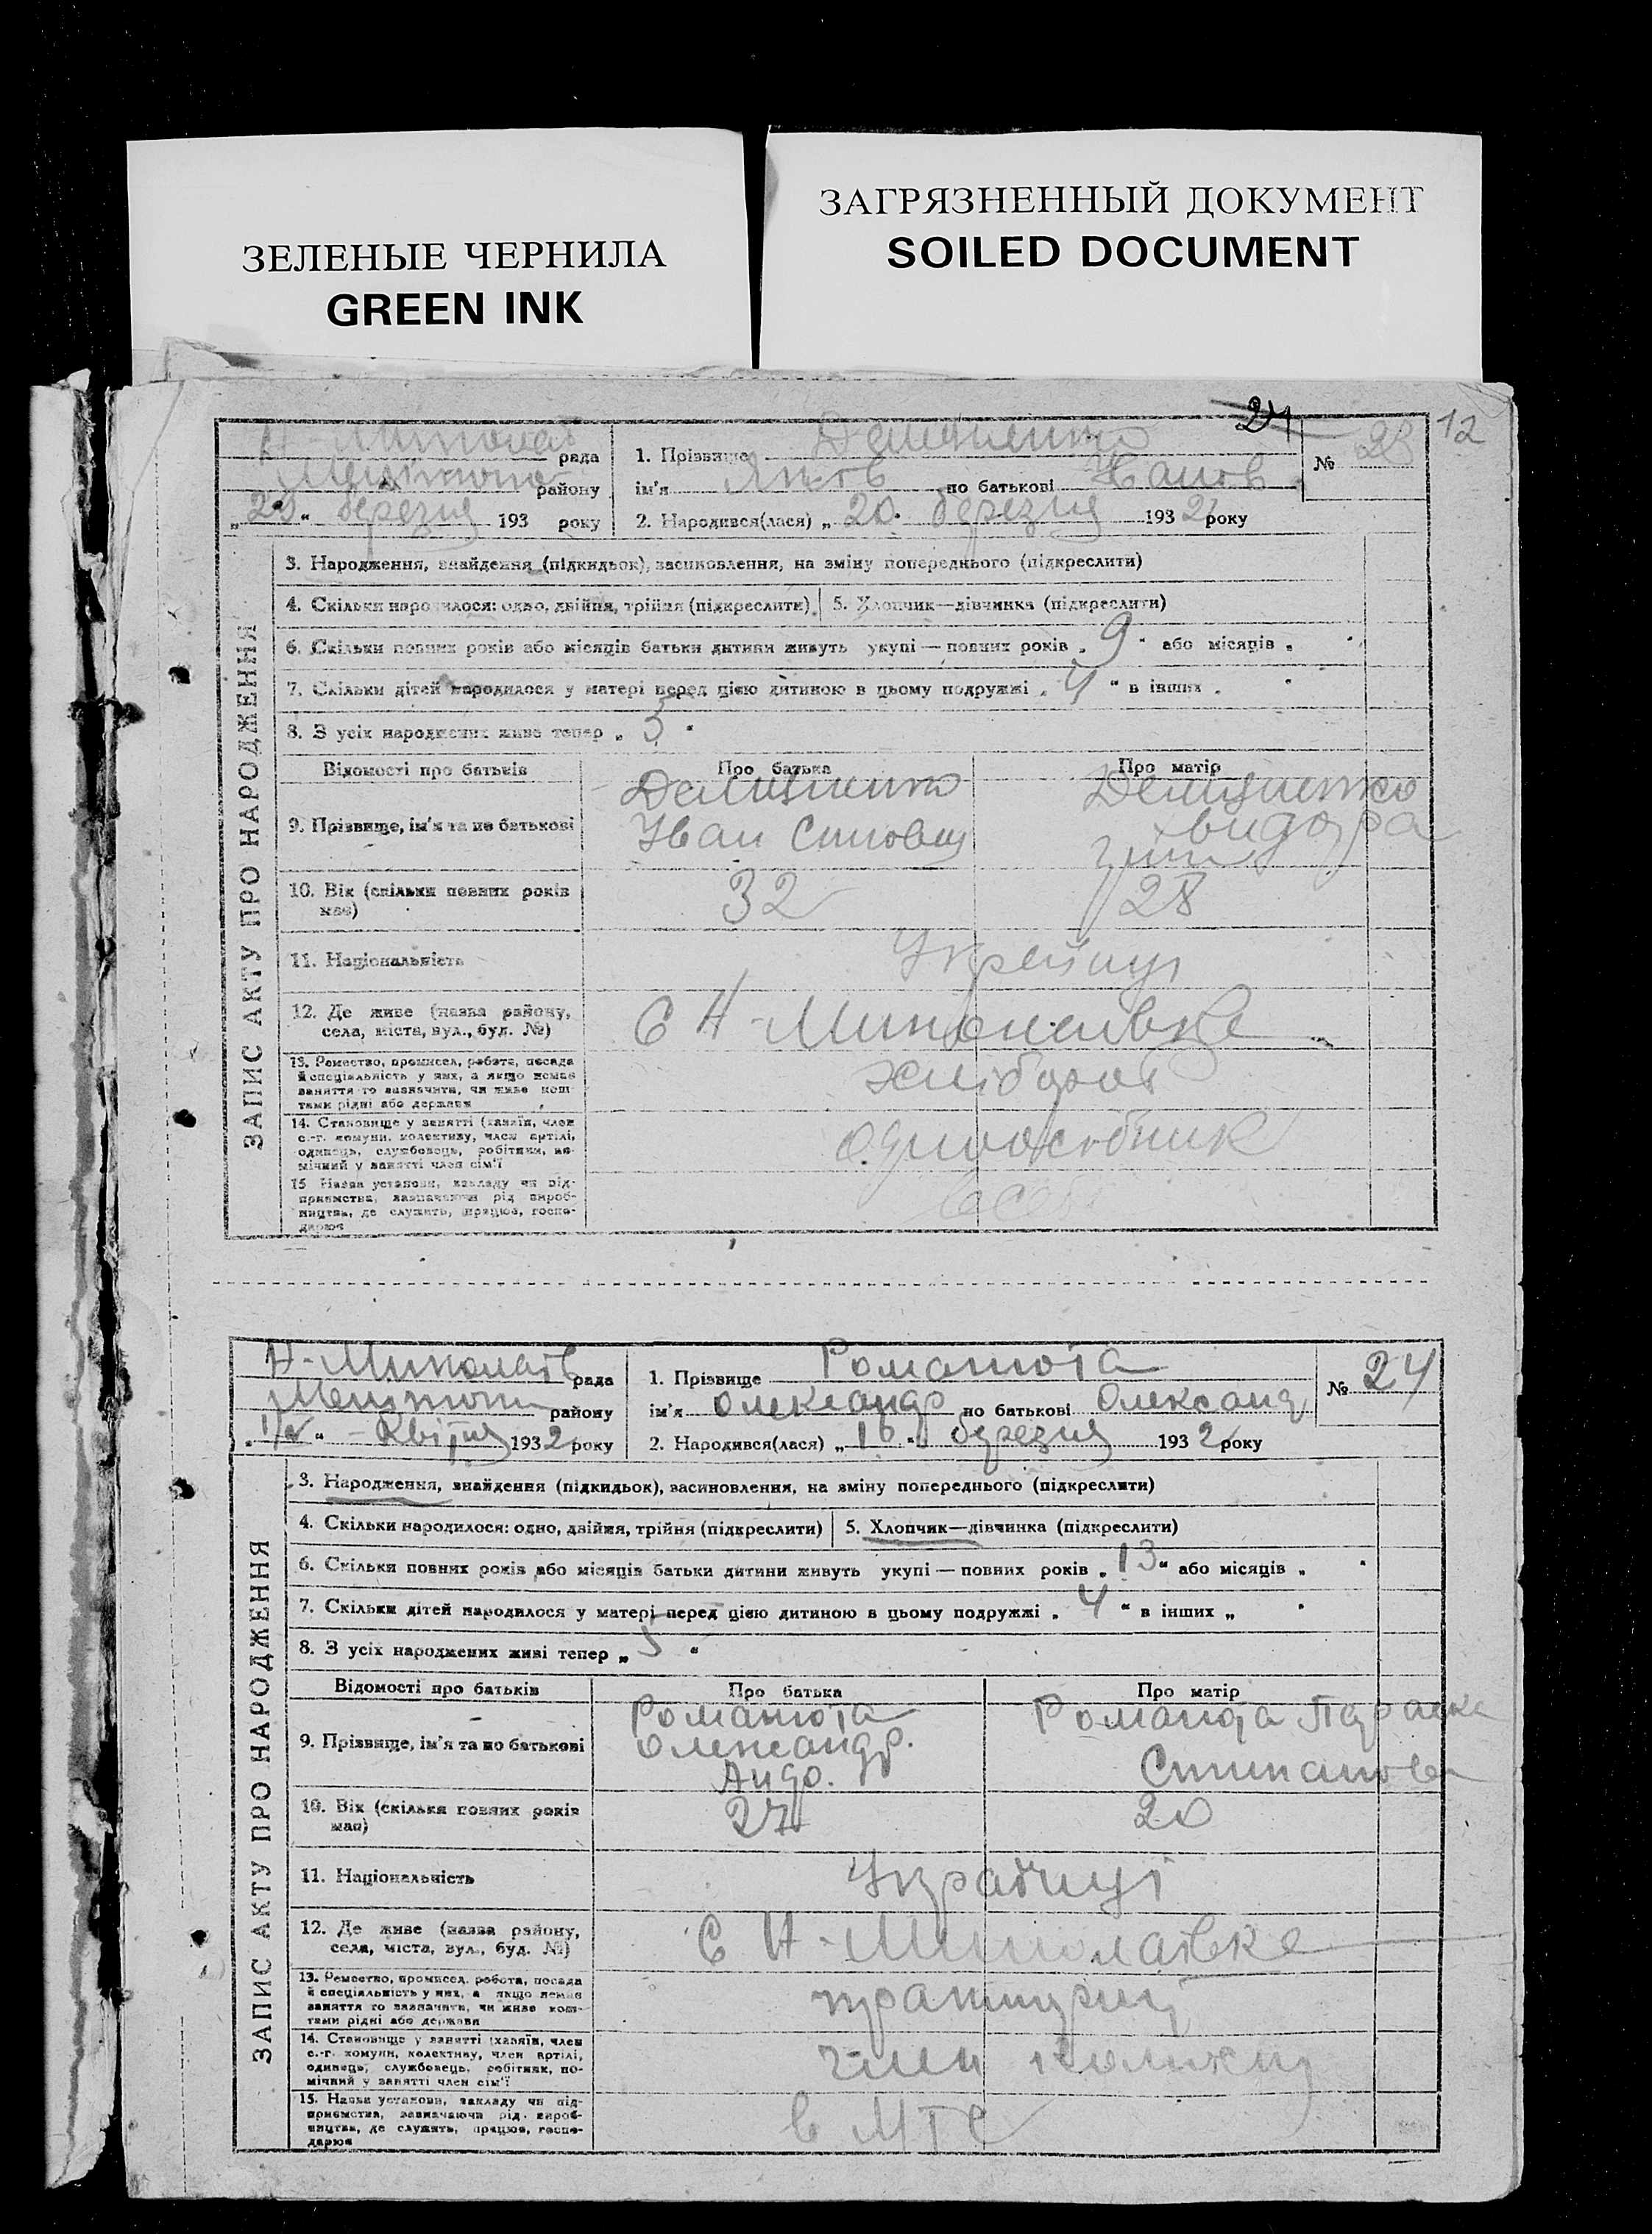 ЗЕЛЕНЫЕ ЧЕРНИЛА
GREEN INK
ЗАГРЯЗНЕННЫЙ ДОКУМЕНТ
SOILED DOCUMENT
24
12
рада
району
„ 20 “ березня 193 року
1. Прізвище
ім'я Яков по батькові Іванов.
2. Народився(лася) „ 20 “ березня 1932 року
№ 23
ЗАПИС АКТУ ПРО НАРОДЖЕННЯ
3. Народження, знайдення (підкидьок), засиновлення, на зміну попереднього (підкреслити)
4. Скільки народилося: одно, двійня, трійня (підкреслити).
5. Хлопчик—дівчинка (підкреслити)
6. Скільки повних років або місяців батьки дитини живуть укупі — повних років „ 9 “ або місяців „ “
7. Скільки дітей народилося у матері перед цією дитиною в цьому подружжі „ 4 “ в інших „ “
8. З усіх народжених живе тепер „ 5 “
Відомості про батьків
Про батька
Про матір
9. Прізвище, ім'я та по батькові
Іван
10. Вік (скільки повних років
має)
32
28
11. Національність
12. Де живе (назва району,
села, міста, вул., буд. №)
С Н-
13. Ремество, промисел, робота, посада
й спеціальність у них, а якщо немає
заняття то зазначити, чи живе кош-
тами рідні або держави
хлібороб
14. Становище у занятті (хазяїн, член
с.-г. комуни, колективу, член артілі,
одинець, службовець, робітник, по-
мічний у занятті член сім'ї
15 Назва установи, закладу чи під-
приємства, зазначаючи рід вироб-
ництва, де служить, працює, госпо-
дарює
Н-Миколаїв рада
району
„ “ Квітня 1932 року
1. Прізвище
ім'я Олександр по батькові Олександ
2. Народився(лася) „ 16 “ березня 1932 року
№ 24
ЗАПИС АКТУ ПРО НАРОДЖЕННЯ
3. Народження, знайдення (підкидьок), засиновлення, на зміну попереднього (підкреслити)
4. Скільки народилося: одно, двійня, трійня (підкреслити)
5. Хлопчик—дівчинка (підкреслити)
6. Скільки повних років або місяців батьки дитини живуть укупі — повних років „ 13 “ або місяців „ “
7. Скільки дітей народилося у матері перед цією дитиною в цьому подружжі „ 4 “ в інших „ “
8. З усіх народжених живі тепер „ 5 “
Відомості про батьків
Про батька
Про матір
9. Прізвище, ім'я та по батькові
Олександр.
Андр.
Параска
10. Вік (скільки повних років
має)
20
11. Національність
Українці
12. Де живе (назва району,
села, міста, вул., буд. №)
С Н-Миколаївка
13. Ремество, промисел, робота, посада
й спеціальність у них, а якщо немає
заняття то зазначити, чи живе кош-
тами рідні або держави
14. Становище у занятті (хазяїн, член
с.-г. комуни, колективу, член артілі,
одинець, службовець, робітник, по-
мічний у занятті член сім'ї
член
15. Назва установи, закладу чи під-
приємства, зазначаючи рід вироб-
ництва, де служить, працює, госпо-
дарює
в МТС